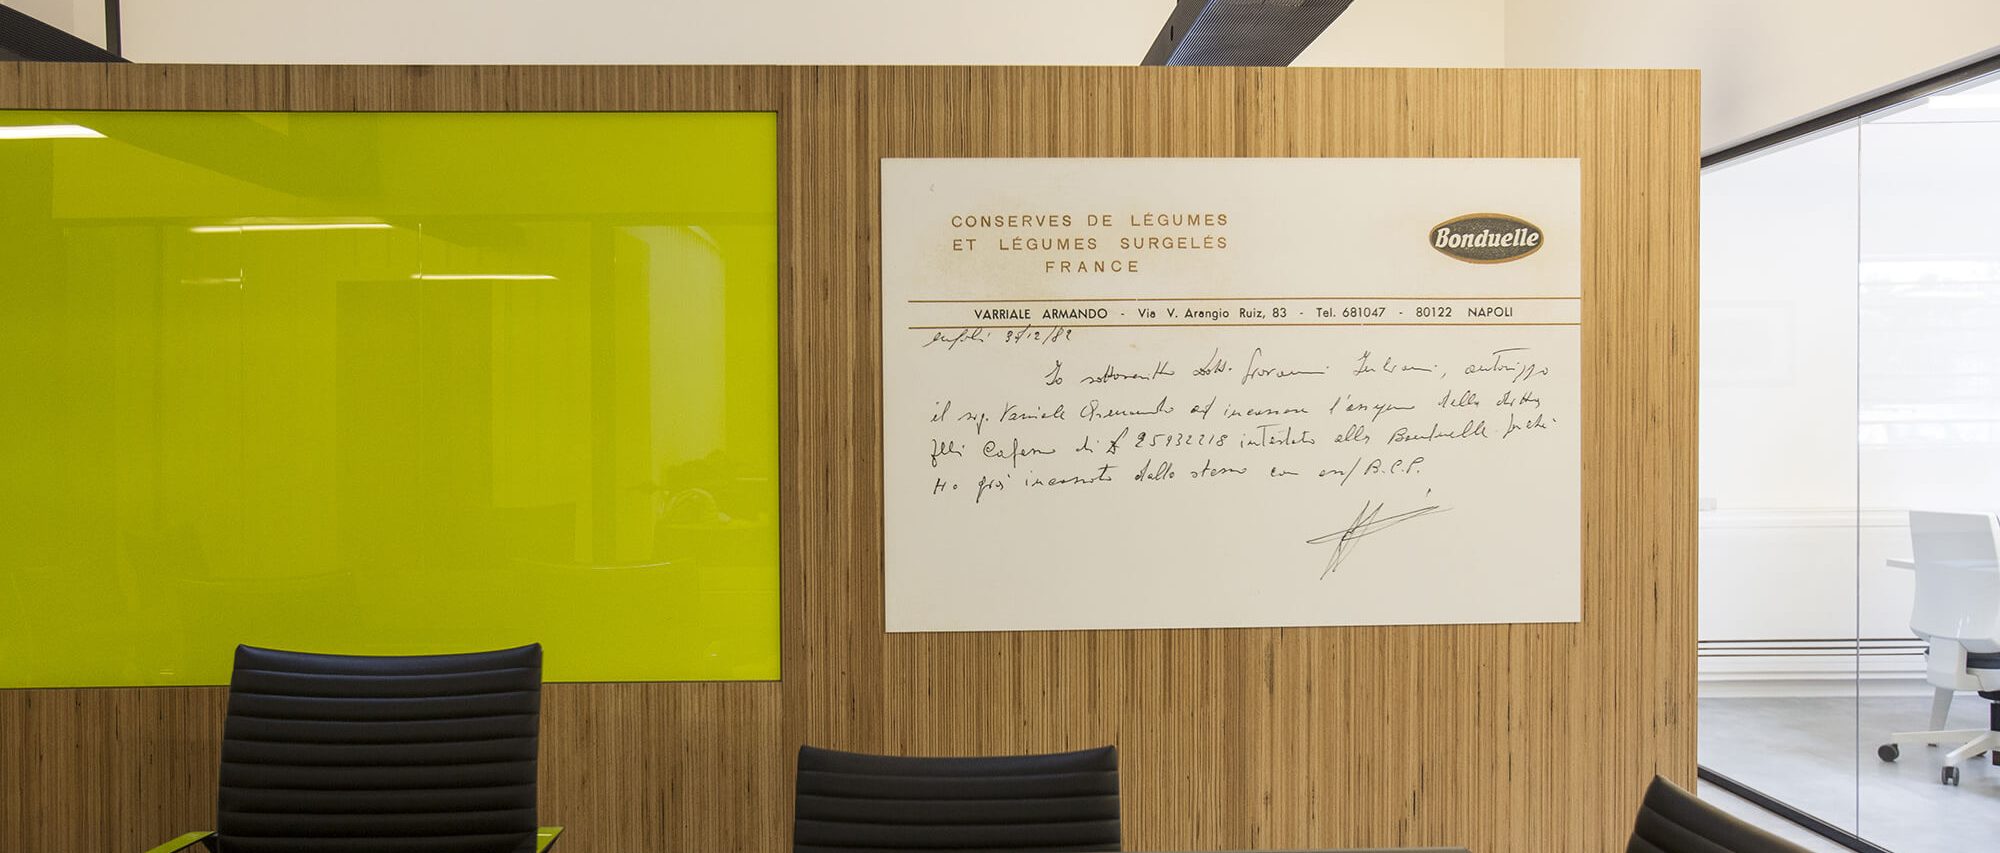 CONSERVES DE LÉGUMES
ET LÉGUMES SURGELÉS
FRANCE
Bonduelle
VARRIALE ARMANDO - Via V. Arangio Ruiz, 83 - Tel. 681047 - 80122 NAPOLI
Io sottoscritto Dott. Giovanni, autorizzo
il sig. Varriale Armando ad incassare l'assegno della ditta
F.lli Cafasso di £ 25932218 intestato alla Bonduelle
già incassato dallo stesso con B.C.P.